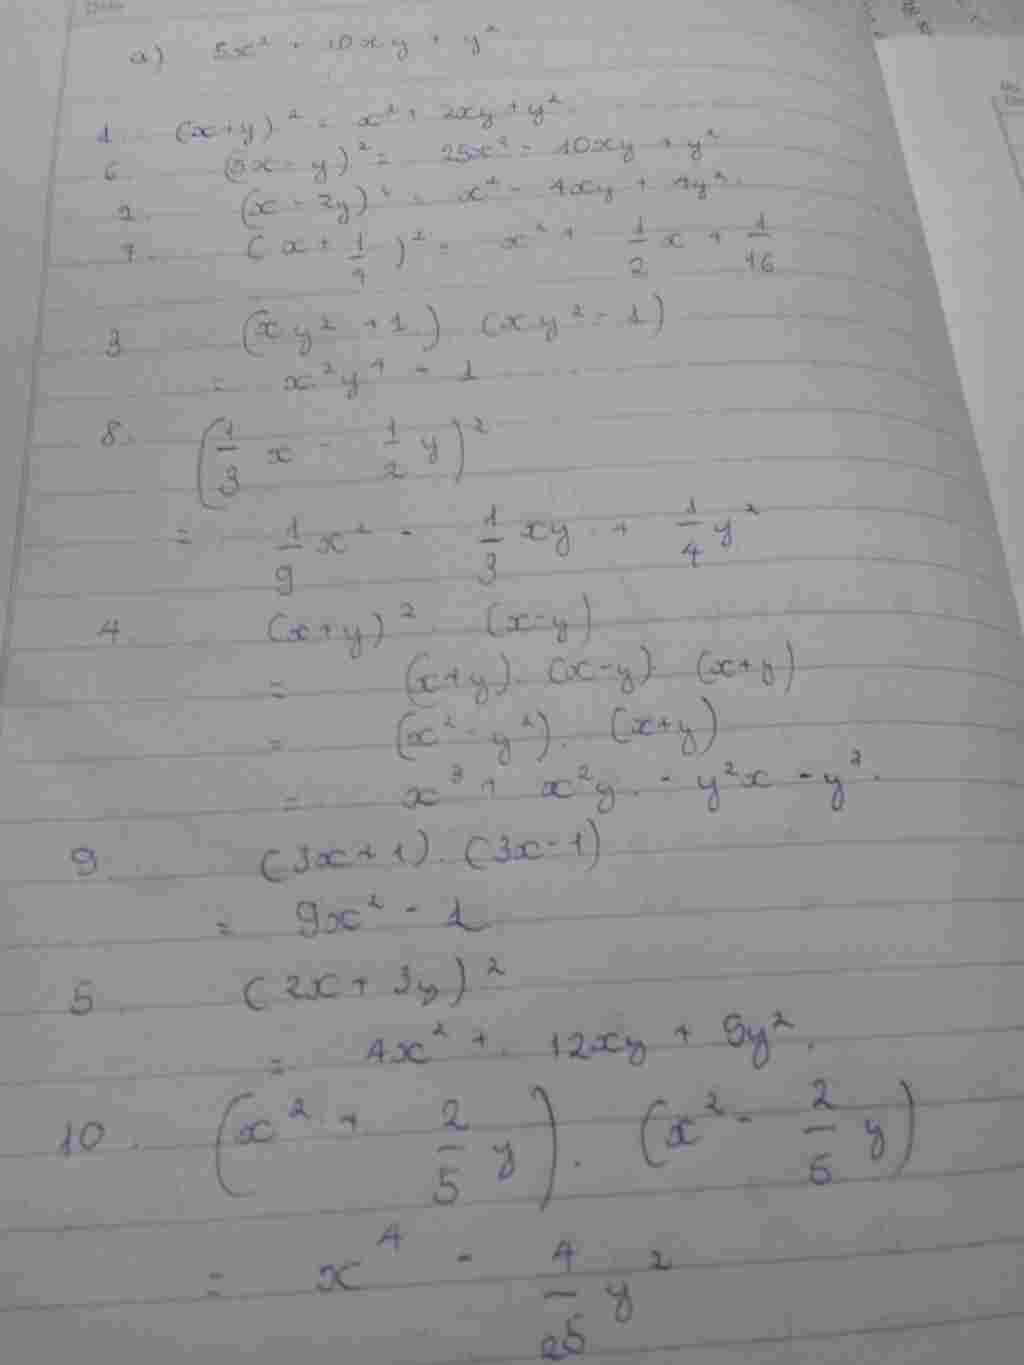 a) 5x² + 10xy + y²
1. (x+y)² = x² + 2xy + y²
6. (5x - y)² = 25x² - 10xy + y²
2. (x - 2y)² = x² - 4xy + 4y².
7. (x + 1/4)² = x² + 1/2 x + 1/16
3 (xy² + 1) (xy² - 1)
= x²y⁴ - 1
8. (1/3 x - 1/2 y)²
= 1/9 x² - 1/3 xy + 1/4 y²
4 (x+y)². (x-y)
= (x+y). (x-y). (x+y)
= (x² - y²). (x+y)
= x³ + x²y - y²x - y³.
9. (3x+1). (3x-1)
= 9x² - 1
5. (2x + 3y)²
= 4x² + 12xy + 9y².
10. (x² + 2/5 y). (x² - 2/5 y)
= x⁴ - 4/25 y²